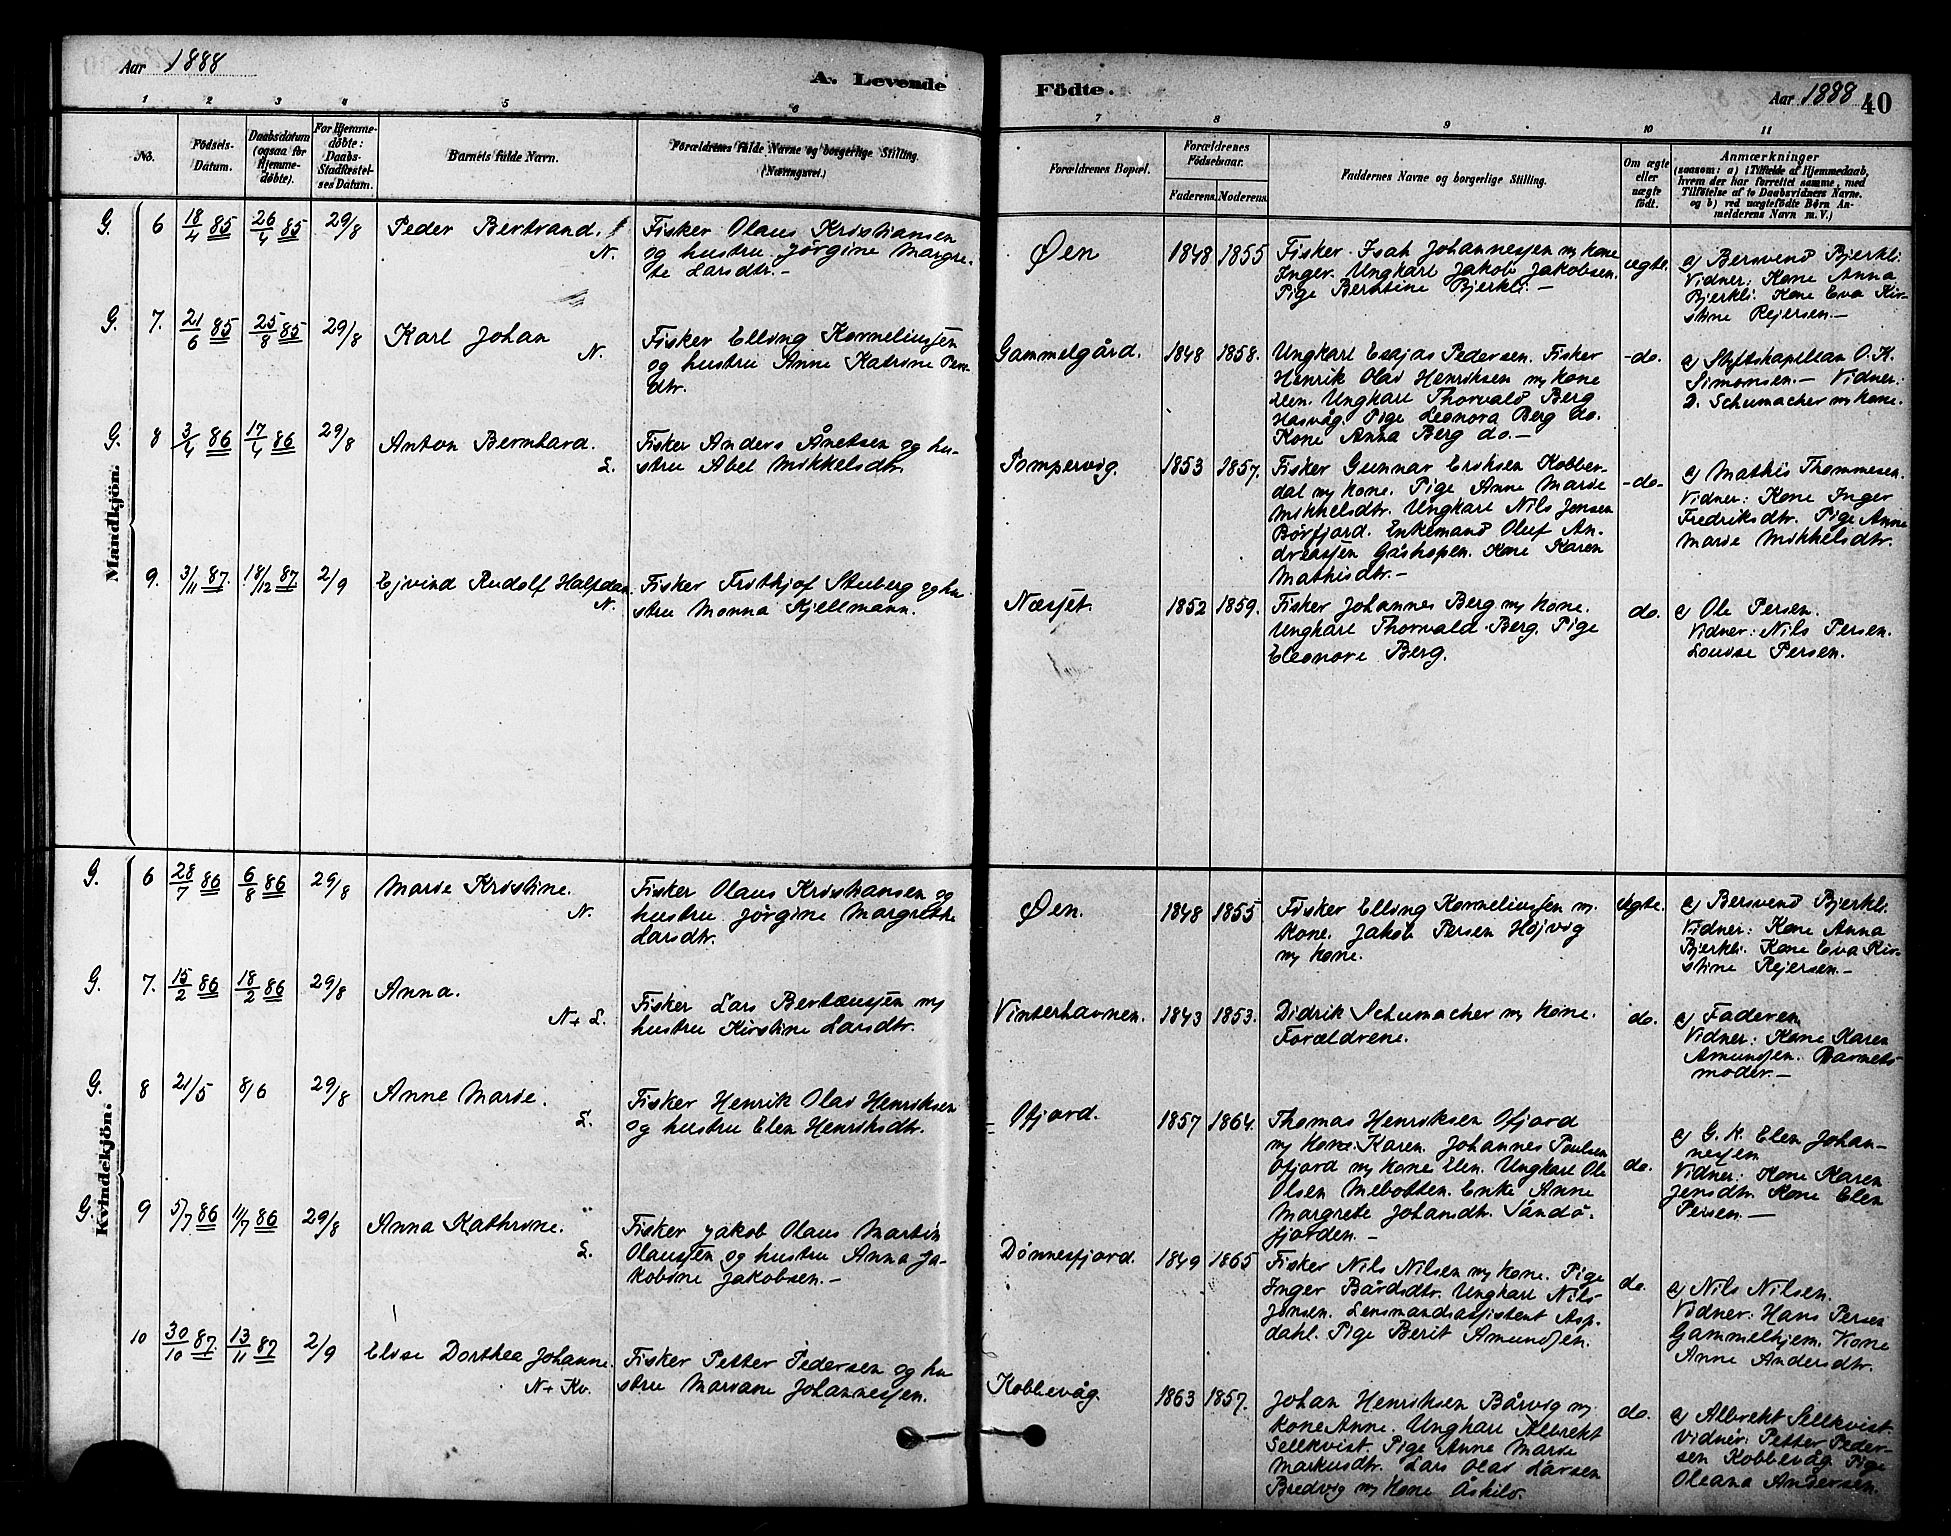 Aar 1888
A. Levende
Födte.
Aar 1888
40
1 2 3 4 5 6 7 8 9 10 11
No.
Födsels-
Datum.
Daabsdatum
(ogsaa for
Hjemme-
döbte).
For Hjemme-
döbte:
Daabs-
Stadfæstel-
ses Datum.
Barnets fulde Navn.
Forældrenes fulde Navne og borgerlige Stilling.
(Næringsvei.)
Forældrenes Bopæl.
Forældrenes
Födselsaar.
Faderens. Moderens.
Faddernes Navne og borgerlige Stilling.
Om ægte
eller
uægte
födt.
Anmærkninger
(saasom: a) i Tilfælde af Hjemmedaab,
hvem der har forrettet samme, med
Tilföielse af to Daabsvidners Navne.
og b) ved uægtefödte Børn An-
melderens Navn m. V.)
Mandkjön.
G. 6 18/4 85 26/4 85 29/8 Peder Bertrand.
N.
Fisker Olaus Kristiansen
og hustru Jørgine Margre-
te Larsdtr.-
Øen 1848 1855
Fisker Isak Johannessen m/ kone
Inger. Ungkarl Jakob Jakobsen.
Pige Berntine Bjerkli.-
ægte.
a) Bersvend Bjerkli.
Vidner: Kone Anna
Bjerkli. Kone Eva Kir-
stine Rejersen.-
G. 7. 21/6 85 25/8 85 29/8 Karl Johan
N.
Fisker Elling Korneliussen
og hustru Anne Katrine Pers-
dtr.
Gammelgård. 1848 1858.
Ungkarl Esajas Pedersen. Fisker
Henrik Olai Henriksen m/ kone
Elen. Ungkarl Thorvald Berg
Hasvåg. Pige Leonora Berg do.
Kone Anna Berg do.-
-do.
a) Stiftskapellan O. K.
Simonsen.- Vidner:
D. Schumacher m/ kone.
G. 8 3/4 86 17/4 86 29/8 Anton Bernhard.
L.
Fisker Anders Ånetsen og hu-
stru Abel Mikkelsdtr.
Pompervig. 1853 1857.
Fisker Gunnar Eriksen Kobber-
dal m/ kone. Pige Anne Marie
Mikkelsdtr. Ungkarl Nils Jensen
Børfjord. Enkemand Oluf An-
dreassen Gåshopen. Kone Karen
Mathisdtr.-
-do-
a) Mathis Thommesen.
Vidner: Kone Inger
Fredriksdtr. Pige Anne
Marie Mikkelsdtr.
9. 3/11 87. 18/12 87 2/9 Ejvind Rudolf Halfdan
N.
Fisker Frithjof Stuberg og hu-
stru Monna Kjellmann.
Næsjet. 1852 1859.
Fisker Johannes Berg m/ kone.
Ungkarl Thorvald Berg. Pige
Eleonore Berg.
do.
a) Ole Persen.
Vidner: Nils Persen.
Louise Persen.
Kvindekjön.
G. 6 28/7 86 6/8 86 29/8 Marie Kristine.
N.
Fisker Olaus Kristiansen og
hustru Jørgine Margrethe
Larsdtr.
Øen. 1848 1855
Fisker Elling Korneliussen m.
kone. Jakob Persen Højvig
m/ kone.
Ægte.
a) Bersvend Bjerkli.
Vidner: Kone Anna
Bjerkli. Kone Eva Kir-
stine Rejersen.-
G. 7. 15/2 86 18/2 86 29/8 Anna.
N+L.
Fisker Lars Bertæussen m/
hustru Kirstine Larsdtr.
Vinterhavnen. 1843 1853.
Didrik Schumacher m/ kone.
Forældrene.
do.
a) Faderen
Vidner: Kone Karen
Amundsen. Barnets-
moder.-
G. 8 21/5 8/6 29/8 Anne Marie.
L.
Fisker Henrik Olai Henriksen
og hustru Elen Henriksdtr.
Ofjord. 1857 1864.
Thomas Henriksen Ofjord
m/ kone Karen. Johannes Poulsen
Ofjord m/ kone Elen. Ungkarl Ole
Olsen Mebotten. Enke Anne
Margrete Johansdtr. Sandø-
fjorden.-
do.
a) G. K. Elen Johan-
nesen
Vidner: Kone Karen
Jensdtr. Kone Elen
Persen.-
G. 9 5/7 86 11/7 86 29/8 Anna Kathrine.
L.
Fisker Jakob Olaus Martin
Olaussen og hustru Anna Ja-
kobine Jakobsen.-
Dønnesfjord. 1849 1865
Fisker Nils Nilsen m/ kone. Pige
Inger Bårdsdtr. Ungkarl Nils
Jensen. Lensmandsassistent Asp-
dahl. Pige Berit Amundsen.
do.
a) Nils Nilsen.
Vidner: Hans Persen
Gammelhjem. Kone
Anne Andersdtr.
10 30/10 87. 13/11 87 2/9 Elise Dorthea Johanne.
N+Kv.
Fisker Petter Pedersen og hu
stru Mariane Johannessen.
Kobbevåg. 1863 1857.
Johan Henriksen Bårvig m/
kone Anne. Ungkarl Albrekt
Sellkvist. Pige Anne Marie
Markusdtr. Lars Olai Larsen
Bredvig m/ kone Åshild.
do.
a) Albrekt Sellkvist.
Vidner: Petter Peder-
sen Kobbevåg. Pige
Oleana Andersen.